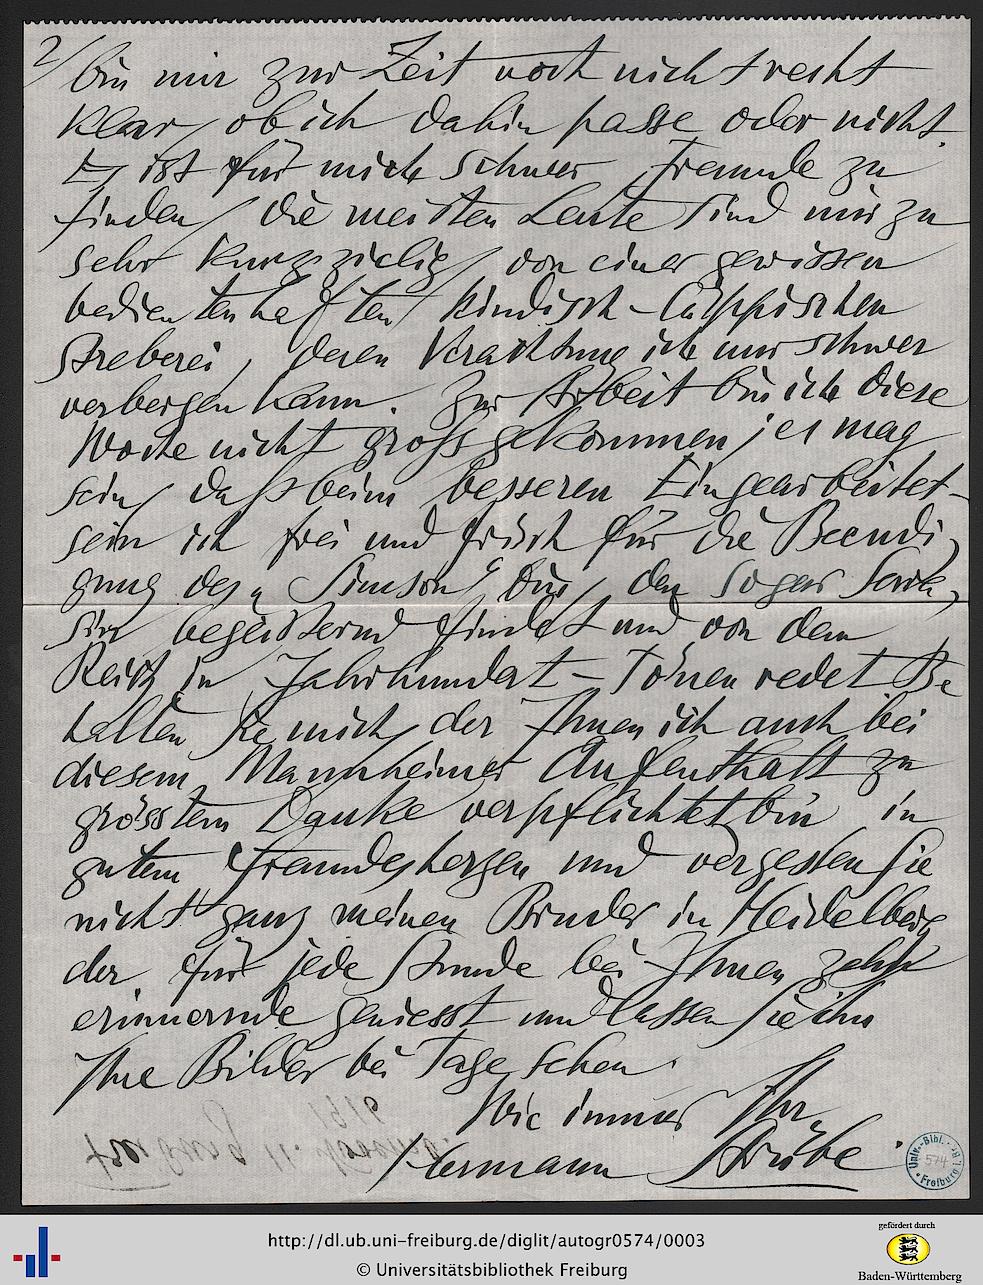 2/ bin mir zur Zeit noch nicht recht
klar, ob ich dahin passe oder nicht.
Es ist für mich schwer, Freunde zu
finden, die meisten Leute sind mir zu
sehr kurzzielig, von einer gewissen
bedientenhaften, kindisch-läppischen
Streberei, deren Verachtung ich nur schwer
verbergen kann. Zur Arbeit bin ich diese
Woche nicht gross gekommen, es mag
sein, daß beim besseren Eingearbeitet-
sein ich frei und frisch für die Beendi-
gung des „Simson“ bin, den sogar
begeisternd findet und von dem
in Jahrhundert-Tönen redet. Be-
halten Sie mich, der Ihnen ich auch bei
diesem Mannheimer Aufenthalt zu
grösstem Danke verpflichtet bin in
gutem Freundesherzen und vergessen Sie
nicht ganz meinen Bruder in Heidelberg,
der für jede Stunde bei Ihnen zehn
erinnernde geniesst und lassen Sie ihn
Ihre Bilder bei Tage sehen.
Wie immer Ihr
Hermann Strübe.
Univ.-Bibl. Freiburg i. B.
574
http://dl.ub.uni-freiburg.de/diglit/autogr0574/0003
© Universitätsbibliothek Freiburg
gefördert durch
Baden-Württemberg